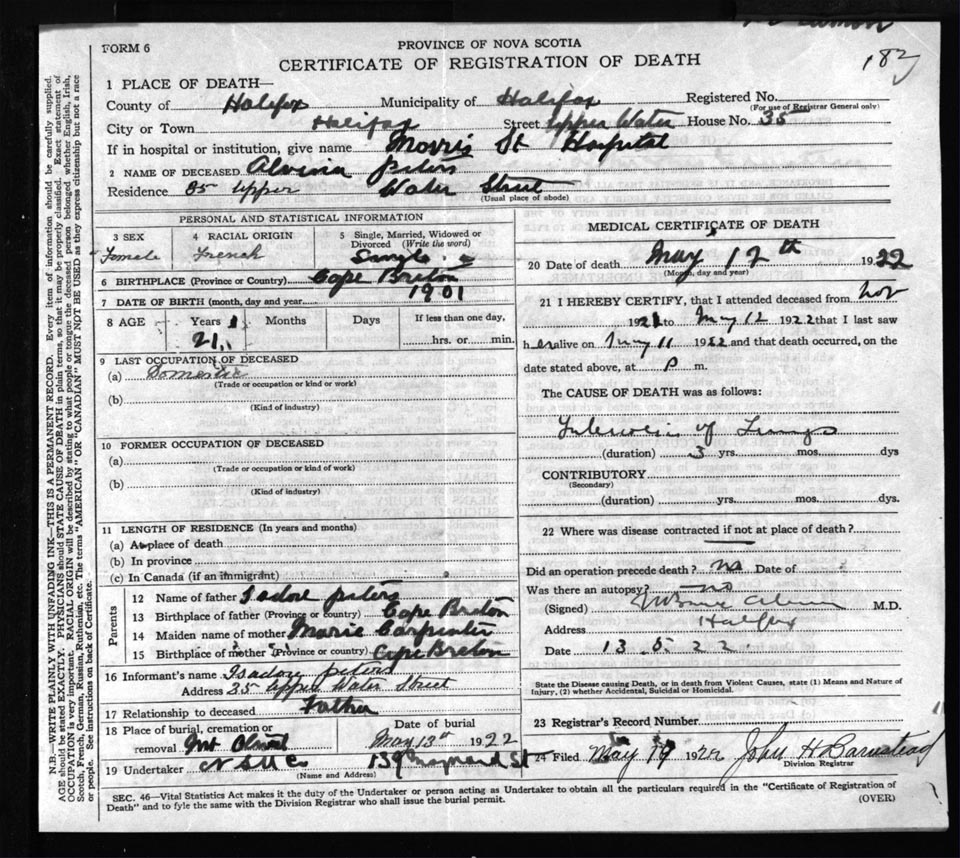 FORM 6
PROVINCE OF NOVA SCOTIA
CERTIFICATE OF REGISTRATION OF DEATH
183
1 PLACE OF DEATH—
County of Halifax Municipality of Halifax Registered No.
(For use of Registrar General only)
City or Town Halifax Street Upper Water House No. 35
If in hospital or institution, give name Morris St Hospital
2 NAME OF DECEASED Alvina peters
Residence 35 Upper Water Street
(Usual place of abode)
PERSONAL AND STATISTICAL INFORMATION
3 SEX
Female
4 RACIAL ORIGIN
French
5 Single, Married, Widowed or Divorced (Write the word)
Single
6 BIRTHPLACE (Province or Country) Cape Breton
7 DATE OF BIRTH (month, day and year) 1901
8 AGE Years Months Days If less than one day,
21 hrs. or min.
9 LAST OCCUPATION OF DECEASED
(a) Domestic
(Trade or occupation or kind or work)
(b)
(Kind of industry)
10 FORMER OCCUPATION OF DECEASED
(a)
(Trade or occupation or kind of work)
(b)
(Kind of industry)
11 LENGTH OF RESIDENCE (In years and months)
(a) At place of death
(b) In province
(c) In Canada (if an immigrant)
Parents
12 Name of father Isadore peters
13 Birthplace of father (Province or country) Cape Breton
14 Maiden name of mother Marie Carpenter
15 Birthplace of mother (Province or country) Cape Breton
16 Informant's name Isadore peters
Address 35 Upper Water Street
17 Relationship to deceased Father
18 Place of burial, cremation or removal Mt Olivet
Date of burial
May 13th 1922
19 Undertaker N S U Co 139 Maynard St
(Name and Address)
MEDICAL CERTIFICATE OF DEATH
20 Date of death May 12th 1922
(Month, day and year)
21 I HEREBY CERTIFY, that I attended deceased from Nov
1921 to May 12 1922 that I last saw
her alive on May 11 1922 and that death occurred, on the
date stated above, at P m.
The CAUSE OF DEATH was as follows:
Tuberculosis of Lungs
(duration) 3 yrs. mos. dys
CONTRIBUTORY
(Secondary)
(duration) yrs. mos. dys.
22 Where was disease contracted if not at place of death?
Did an operation precede death? no Date of
Was there an autopsy? no
(Signed) M.D.
Address Halifax
Date 13 5 22
State the Disease causing Death, or in death from Violent Causes, state (1) Means and Nature of
Injury, (2) whether Accidental, Suicidal or Homicidal.
23 Registrar's Record Number
24 Filed May 1922 John H Barnstead
Division Registrar
SEC. 46—Vital Statistics Act makes it the duty of the Undertaker or person acting as Undertaker to obtain all the particulars required in the "Certificate of Registration of
Death" and to fyle the same with the Division Registrar who shall issue the burial permit.
(OVER)
N.B.—WRITE PLAINLY WITH UNFADING INK—THIS IS A PERMANENT RECORD. Every item of information should be carefully supplied.
AGE should be stated EXACTLY. PHYSICIANS should STATE CAUSE OF DEATH in plain terms, so that it may be properly classified. Exact statement of
OCCUPATION is very important. RACIAL ORIGIN will be described by stating to what people or tongue the deceased person belonged, whether English, Irish,
Scotch, French, German, Russian, Ruthenian, etc. The terms "AMERICAN" OR "CANADIAN" MUST NOT BE USED as they express citizenship but not a race
or people. See instructions on back of Certificate.